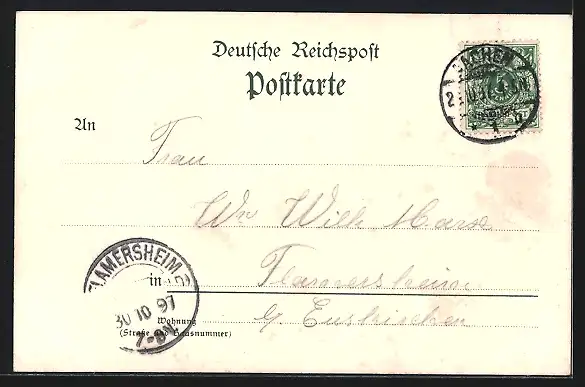 Deutsche Reichspost
Postkarte
AACHEN
5
1
An
Frau
Ww Willh. Marx
in Flamersheim
b/ Euskirchen
Wohnung
(Straße und Hausnummer)
FLAMERSHEIM
30 10 97
7-8N